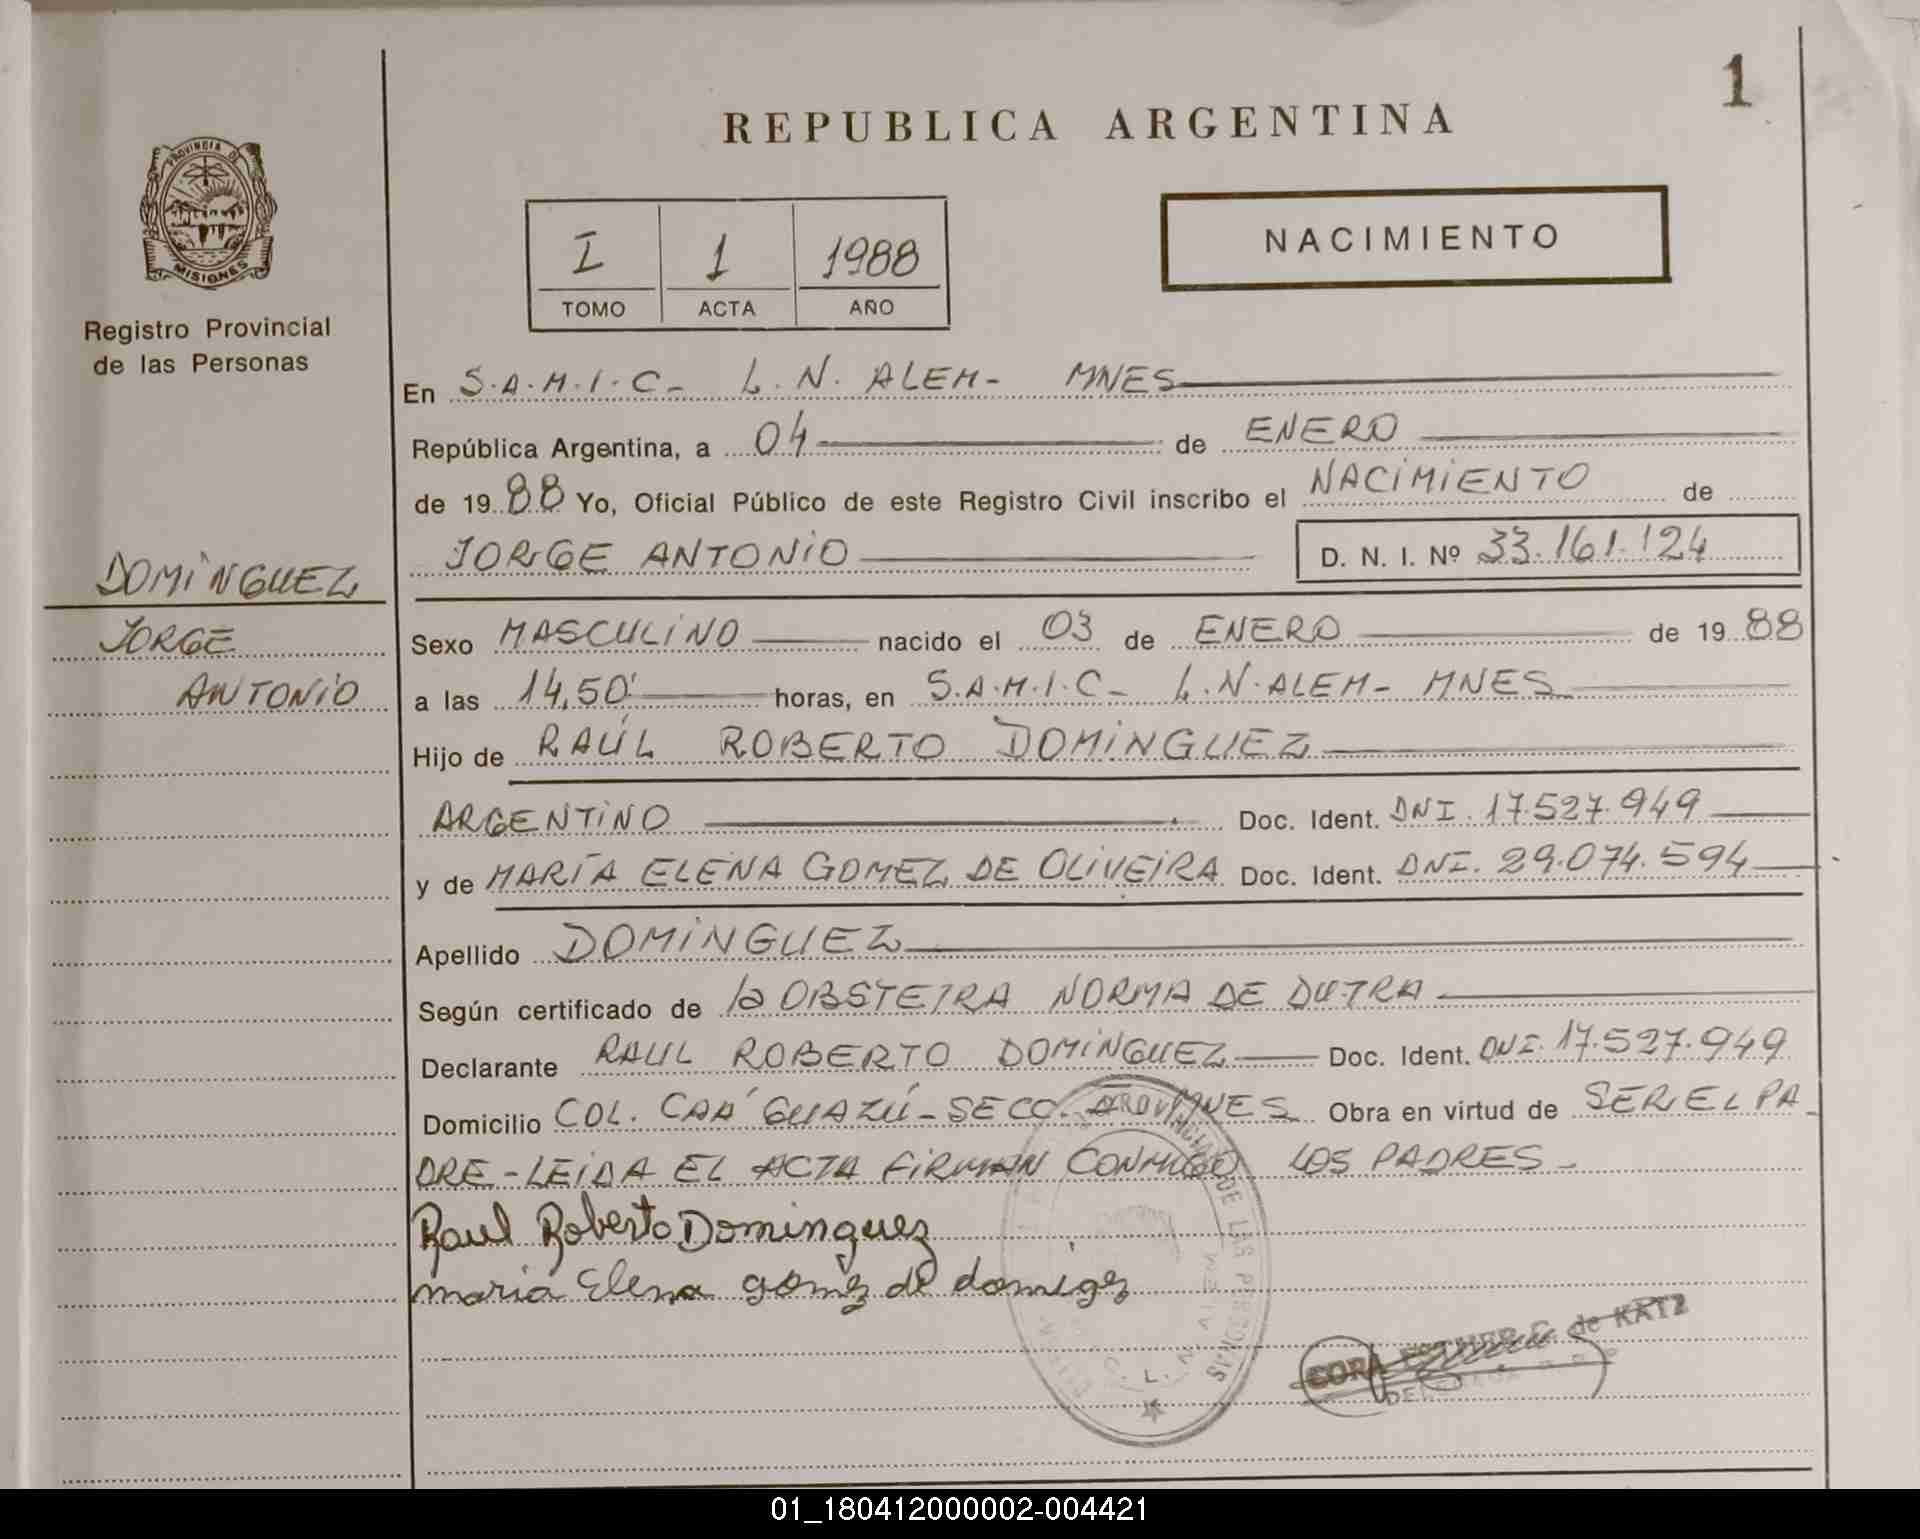 1
REPUBLICA ARGENTINA
PROVINCIA DE
MISIONES
Registro Provincial
de las Personas
I 1 1988
TOMO ACTA AÑO
NACIMIENTO
En S.A.M.I.C- L.N. ALEM- MNES
República Argentina, a 04 de ENERO
de 1988 Yo, Oficial Público de este Registro Civil inscribo el NACIMIENTO de
JORGE ANTONIO D. N. I. Nº 33.161.124
DOMINGUEZ
JORGE
ANTONIO
Sexo MASCULINO nacido el 03 de ENERO de 1988
a las 14,50' horas, en S.A.M.I.C- L.N.ALEM- MNES
Hijo de RAÚL ROBERTO DOMINGUEZ
ARGENTINO Doc. Ident. DNI. 17.527.949
y de MARÍA ELENA GOMEZ DE OLIVEIRA Doc. Ident. DNI. 29.074.594
Apellido DOMINGUEZ
Según certificado de la OBSTETRA NORMA DE DUTRA
Declarante RAUL ROBERTO DOMINGUEZ Doc. Ident. DNI. 17.527.949
Domicilio COL. CAA GUAZÚ-SECC. MNES Obra en virtud de SER EL PA-
DRE-LEIDA EL ACTA FIRMAN CONMIGO LOS PADRES-
Raul Roberto Dominguez
maria Elena gomez de domigez
DE LAS PERSONAS
CORA ESTHER G. de KATZ
01_180412000002-004421